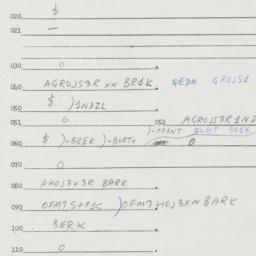 020 $
021 —
030 0
040 AGROJS3R xx BR1K QEDN GROJS1
050 $ )1NDZL
051 0 052 AGROJS3R1ND
060 $ )-BREK )-BORT+ )-PRINT BREK 0
070 0
080 AHOJ3X3R BARK
090 )OFM7HOJ3XNBARK
100 BERK
110 0